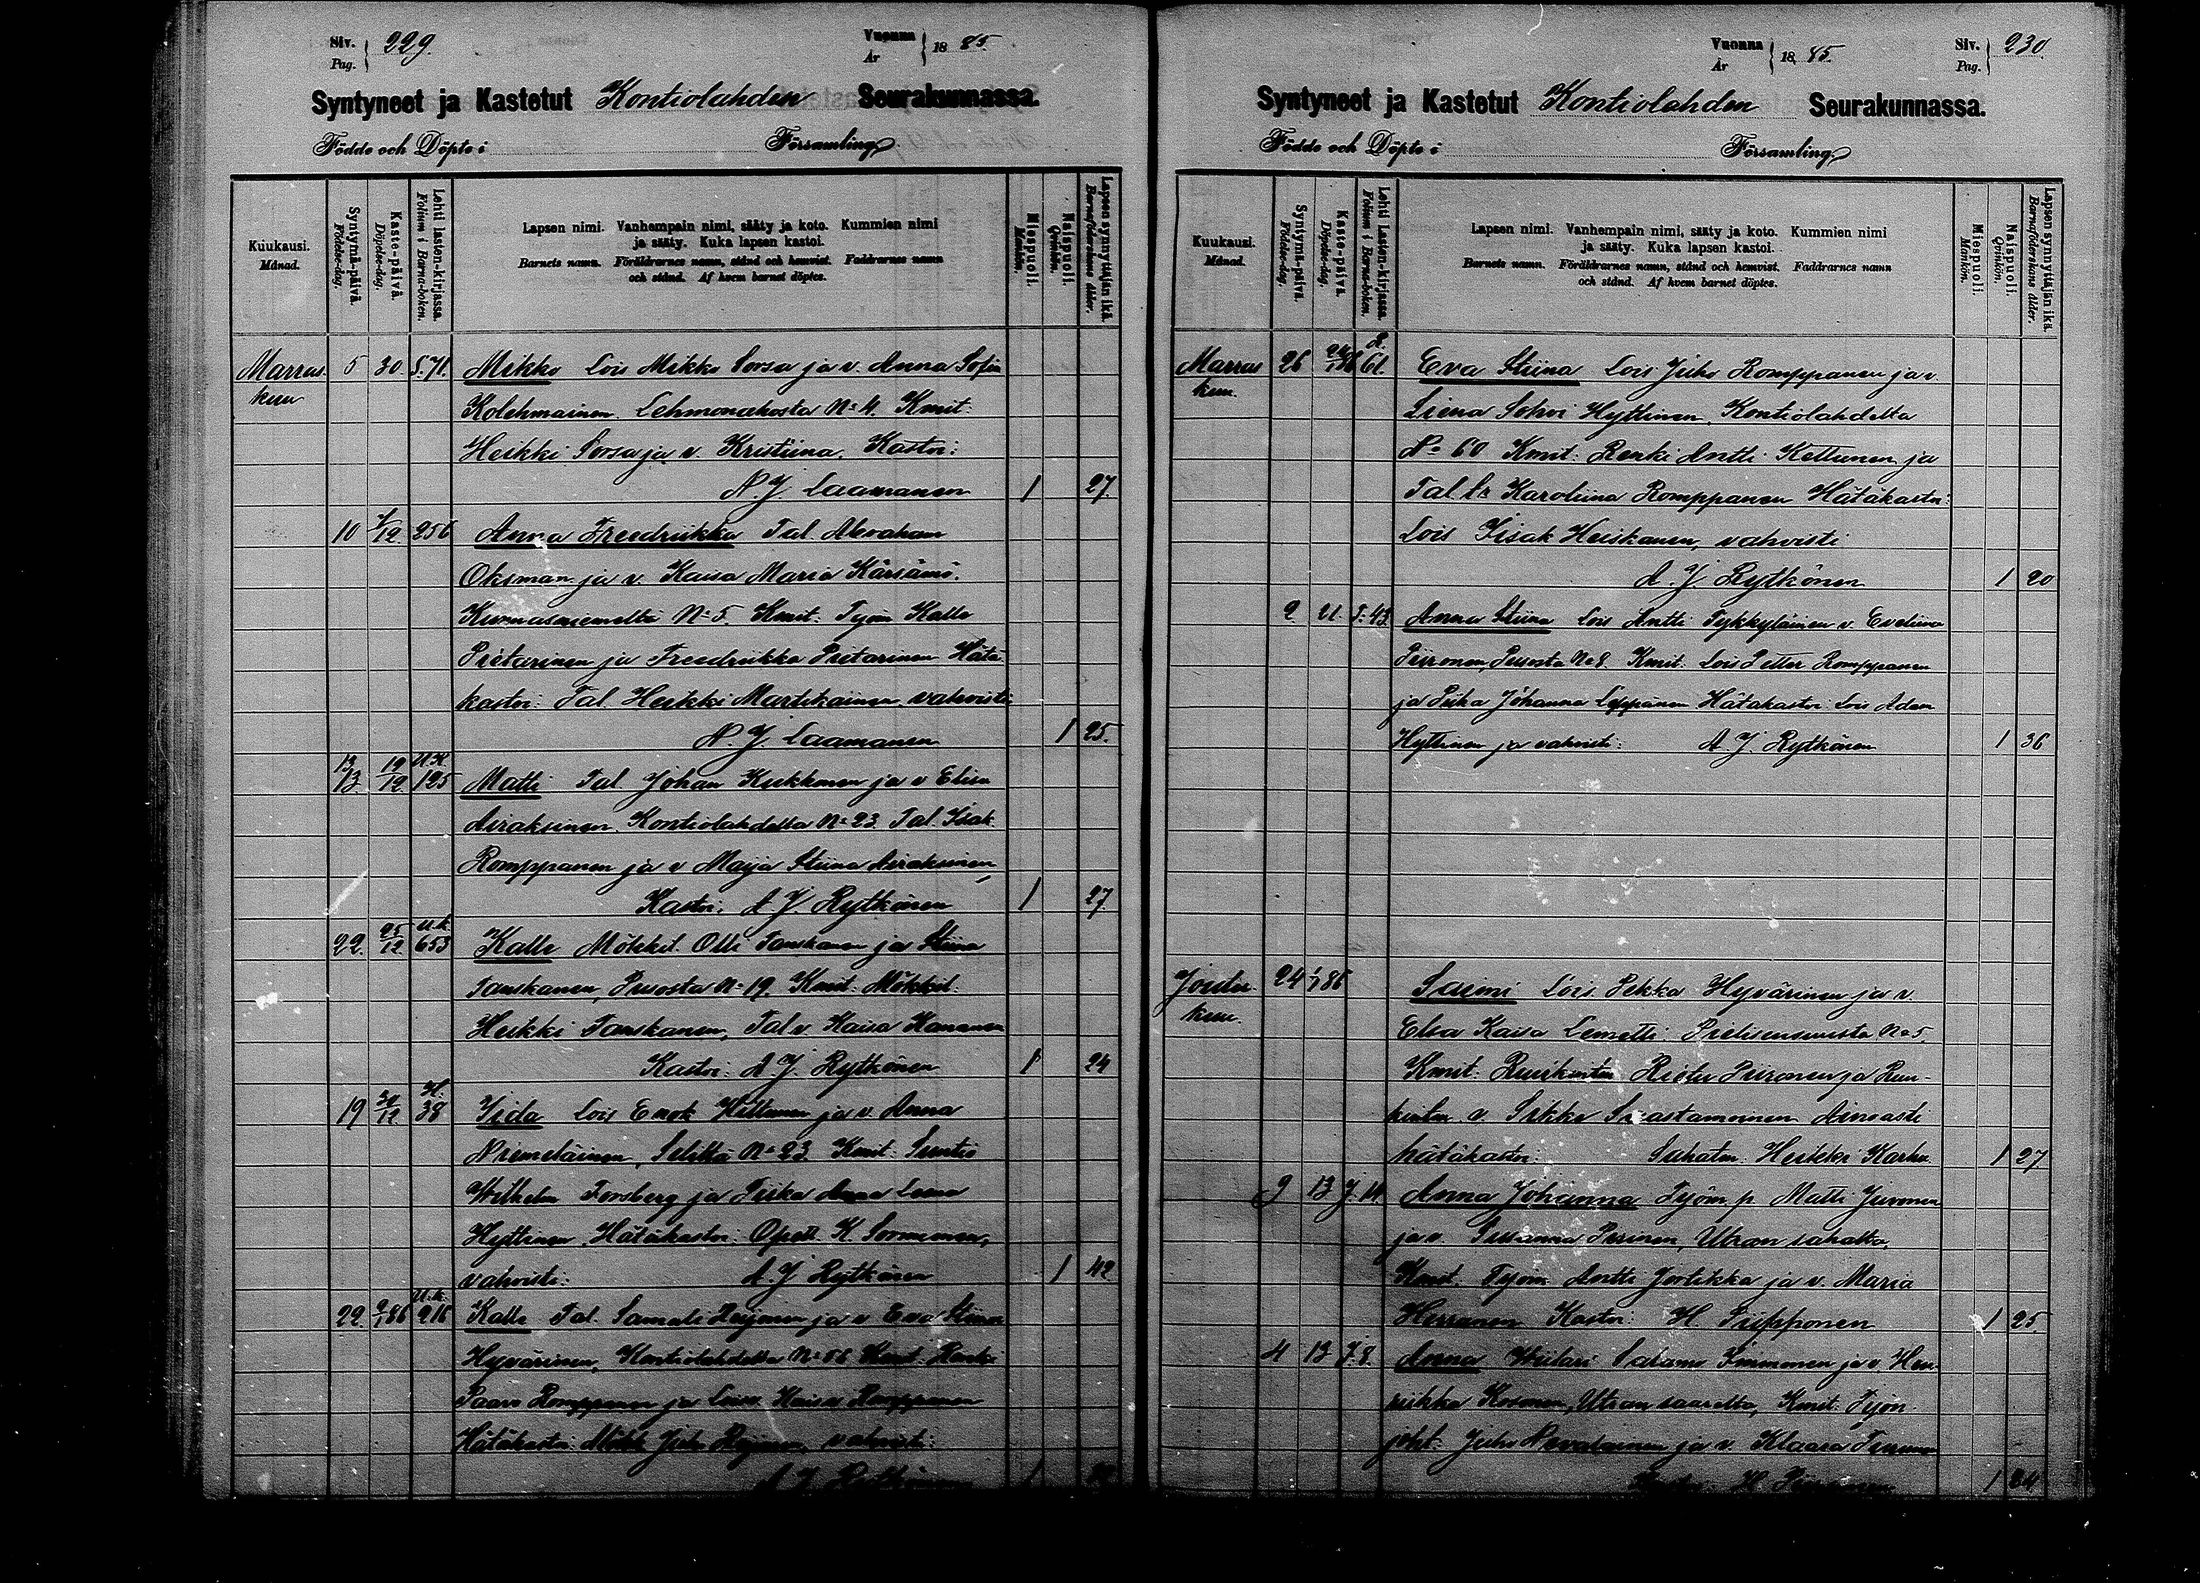 Siv. Pag. 229.
Vuonna År 1885.
Syntyneet ja Kastetut Kontiolahden Seurakunnassa.
Födde och Döpte i Församling.
Kuukausi. Månad.
Syntymä-päivä. Födelse-dag.
Kaste-päivä. Döpelse-dag.
Lehti lasten-kirjassa. Folium i Barna-boken.
Lapsen nimi. Vanhempain nimi, sääty ja koto. Kummien nimi
ja sääty. Kuka lapsen kastoi.
Barnets namn. Föräldrarnes namn, stånd och hemvist. Faddrarnes namn
och stånd. Af hvem barnet döptes.
Miespuoli. Mankön.
Naispuoli. Qvinkön.
Lapsen synnyttäjän ikä. Barnaföderskans ålder.
Marras 5 30 S.71. Mikko Lois Mikko Sorsa ja v. Anna Sofia
kuu Kolehmainen Lehmonahosta No 4. Kmit:
Heikki Sorsa ja v. Kristiina. Kastoi:
N. J. Laamanen 1 27.
10 1/12 256 Anna Freedriikka Tal. Abraham
Oksman ja v. Kaisa Maria Kärsämö.
Kurmasniemeltä No 5. Kmit: Työm. Kalle
Pietarinen ja Freedriikka Pietarinen Hätä
kastoi: Tal. Heikki Martikainen vahvisti
N. J. Laamanen 1 25.
13 19/12 U.K. 125 Matti Tal. Johan Kukkonen ja v Elisa
13
Airaksinen. Kontiolahdelta No 23. Tal. Isak
Romppanen ja v Maija Stiina Airaksinen,
Kastoi: A. J. Rytkönen 1 27.
22. 25/12 U.k. 653 Kalle Mökkil. Olli Tanskanen ja Stiina
Tanskanen, Puosta No 19. Kmit. Mökkil.
Heikki Tanskanen, Tal. v. Kaisa
Kastoi: A. J. Rytkönen 1 24
19 30/12 H. 38 Iida Lois Enok Hiltunen ja v. Anna
Niemeläinen, Selittä No 23. Kmit: Suntio
Wilhelm Forsberg ja Piika Anna Leena
Hyttinen. Hätäkastoi: Opett. K. Sormunen,
vahvisti: A. J. Rytkönen 1 42
22. 2/1 86 U.k. 216 Kalle Tal. Samuli ja v Eva Stiina
Hyvärinen, Kontiolahdelta No 66 Kmit: Renki
Paavo Romppanen ja Kaisa Romppanen
Hätäkastoi: Mökk. Juho vahvisti:
A. J. Rytkönen 1
Vuonna År 1885.
Siv. Pag. 230
Syntyneet ja Kastetut Kontiolahden Seurakunnassa.
Födde och Döpte i Församling.
Kuukausi. Månad.
Syntymä-päivä. Födelse-dag.
Kaste-päivä. Döpelse-dag.
Lehti Lasten-kirjassa. Folium i Barna-boken.
Lapsen nimi. Vanhempain nimi, sääty ja koto. Kummien nimi
ja sääty. Kuka lapsen kastoi.
Barnets namn. Föräldrarnes namn, stånd och hemvist. Faddrarnes namn
och stånd. Af hvem barnet döptes.
Miespuoli. Mankön.
Naispuoli. Qvinkön.
Lapsen synnyttäjän ikä. Barnaföderskans ålder.
Marras 26 61. Eva Stiina Lois Juho Romppanen ja v.
kuu. Liena Sohvi Hyttinen, Kontiolahdelta
No 60 Kmit: Renki Antti Kettunen ja
Tal. tr Karoliina Romppanen Hätäkastoi:
Lois Iisak Heiskanen, vahvisti
A. J. Rytkönen 1 20
2 21. T. 43 Anna Stiina Lois Antti Tykkyläinen v. Eveliina
Piironen, Puosta No 8. Kmit. Lois Petter Romppanen
ja Piika Johanna Leppänen Hätäkastoi: Lois Adam
Hyttinen ja vahvisti: A. J. Rytkönen 1 36
Joulu- 24 1/1 86 Saimi Lois Pekka Hyvärinen ja v.
kuu. Elsa Kaisa Lemetti. Pielisensuusta No 5.
Kmit: Ruukintm Risto Piironen ja Ruu-
kintm. v. Saastamoinen Ainoasti
hätäkastoi: Sahatm. Heikki Karhu 1 27
9 13 J. 14 Anna Johanna Työm. p Matti Juvonen
ja v. Susanna Pesinen, Utran sahalta.
Kmit. Työm Antti Jortikka ja v. Maria
Herranen Kastoi: H. Piipponen 1 25.
4 13 J. 8. Anna Wiilari Salamo Immonen ja v. Hen-
riikka Kosonen, Utran saarelta, Kmit: Työn-
joht. Juho Nevalainen ja v. Klaara
Kastoi: H. Piipponen 1 24